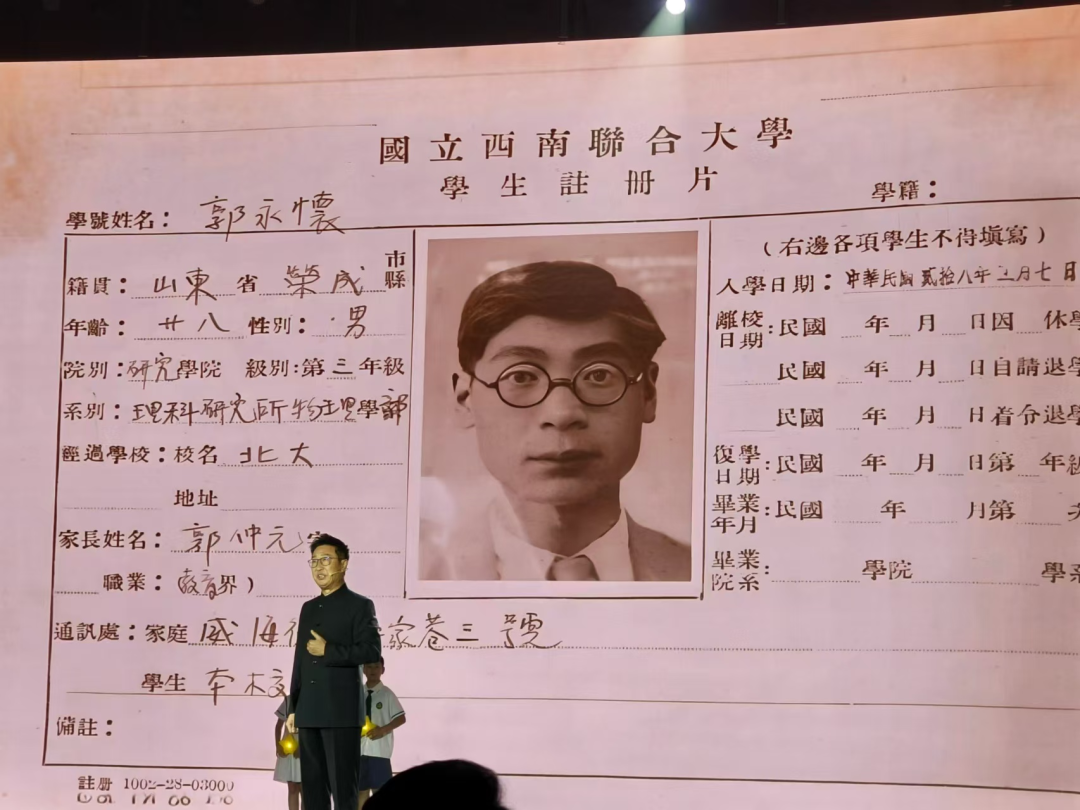 國立西南聯合大學
學生註冊片
學號姓名：郭永懷
學籍：
籍貫：山東省榮成市縣
年齡：廿八 性別：男
院別：研究學院 級別：第三年級
系別：理科研究所物理學部
經過學校：校名 北大
地址
家長姓名：郭仲元
職業：教育界)
通訊處：家庭 威海 家巷三號
學生 本校
備註：
(右邊各項學生不得填寫)
入學日期：中華民國貳拾八年 月七日
離校日期：民國 年 月 日因 休學
民國 年 月 日自請退學
民國 年 月 日着令退學
復學日期：民國 年 月 日第 年級
畢業年月：民國 年 月第
畢業院系：學院 學系
註册 1002-28-03000